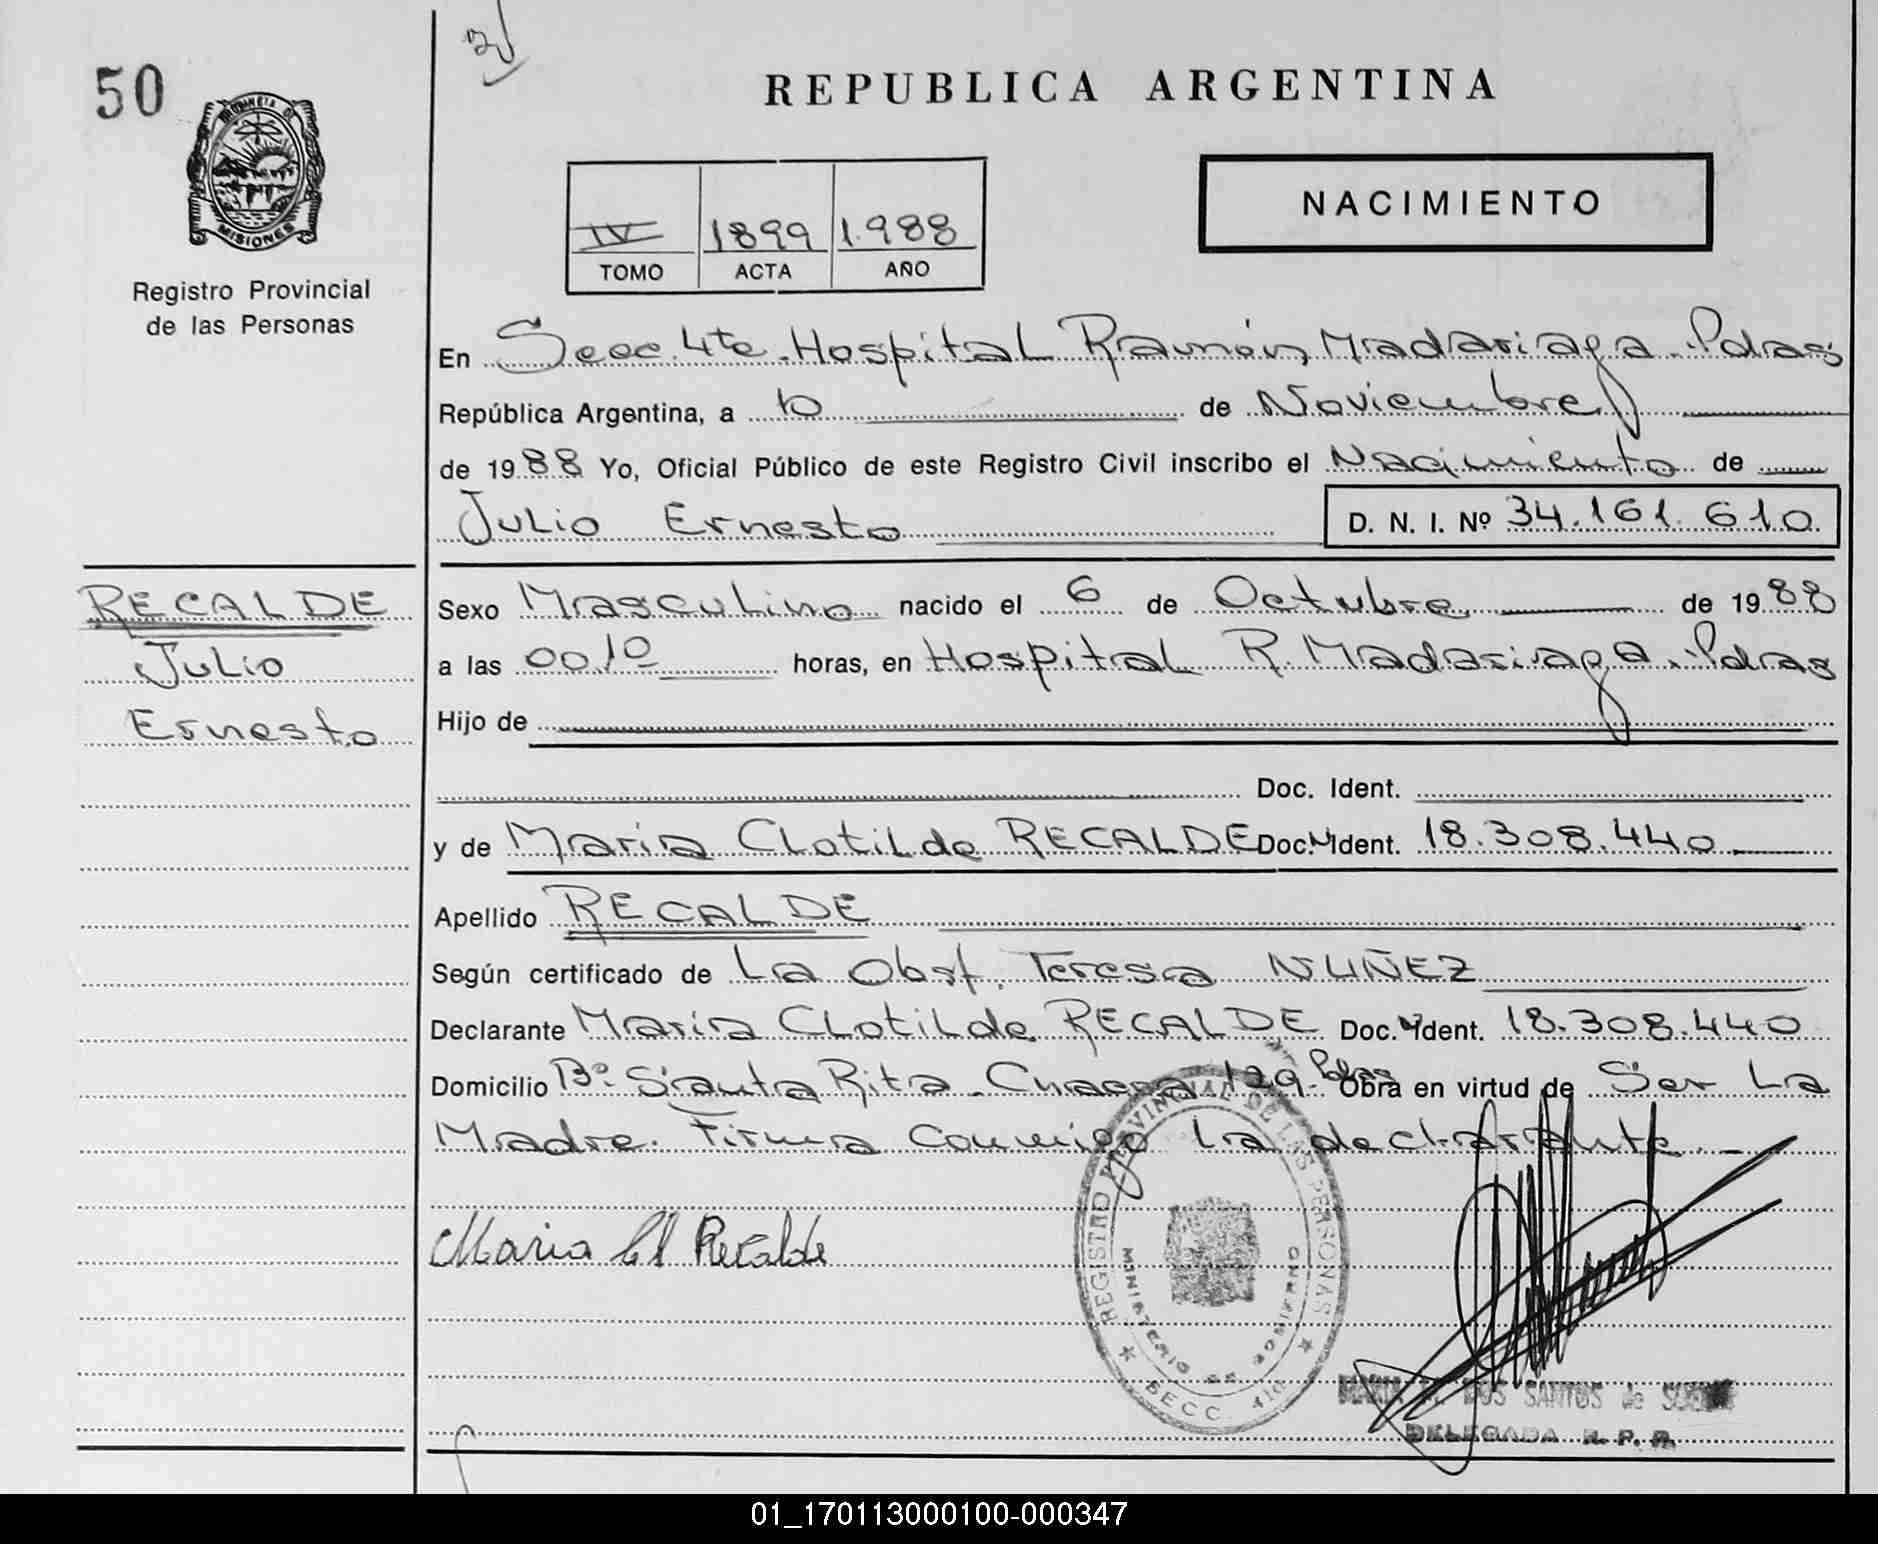 50
REPUBLICA ARGENTINA
PROVINCIA DE
MISIONES
Registro Provincial
de las Personas
NACIMIENTO
IV 1899 1.988
TOMO ACTA AÑO
En Secc. 4ta. Hospital Ramón Madariaga. Pdas
República Argentina, a 10 de Noviembre
de 1988 Yo, Oficial Público de este Registro Civil inscribo el Nacimiento de
Julio Ernesto D. N. I. Nº 34.161.610
RECALDE
Julio
Ernesto
Sexo Masculino nacido el 6 de Octubre de 1988
a las 00.10 horas, en Hospital R. Madariaga. Pdas
Hijo de
Doc. Ident.
y de Maria Clotilde RECALDE Doc. Ident. 18.308.440
Apellido RECALDE
Según certificado de La Obst. Teresa NUÑEZ
Declarante María Clotilde RECALDE Doc. Ident. 18.308.440
Domicilio Bº. Santa Rita. 129. Pdas Obra en virtud de Ser La
Madre. Firma Conmigo La declarante.
Maria Cl Recalde
REGISTRO PROVINCIAL DE LAS PERSONAS
MINISTERIO DE GOBIERNO
SECC.
DOS SANTOS de
DELEGADA R. P. P.
01_170113000100-000347